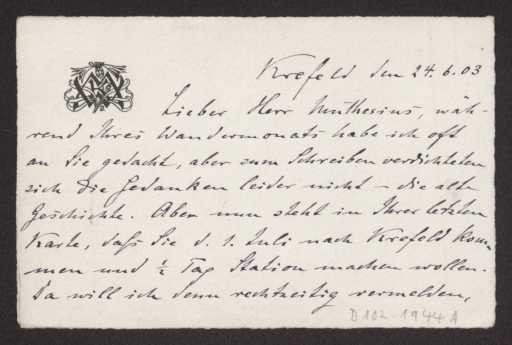 Krefeld den 24.6.03
Lieber Herr Muthesius, wäh-
rend Ihres Wandermonats habe ich oft
an Sie gedacht, aber zum Schreiben verdichteten
sich die Gedanken leider nicht – die alte
Geschichte. Aber nun steht in Ihrer letzten
Karte, daß Sie d. 1. Juli nach Krefeld kom-
men und ½ Tag Station machen wollen.
Da will ich denn rechtzeitig vermelden,
D 102-1944 A